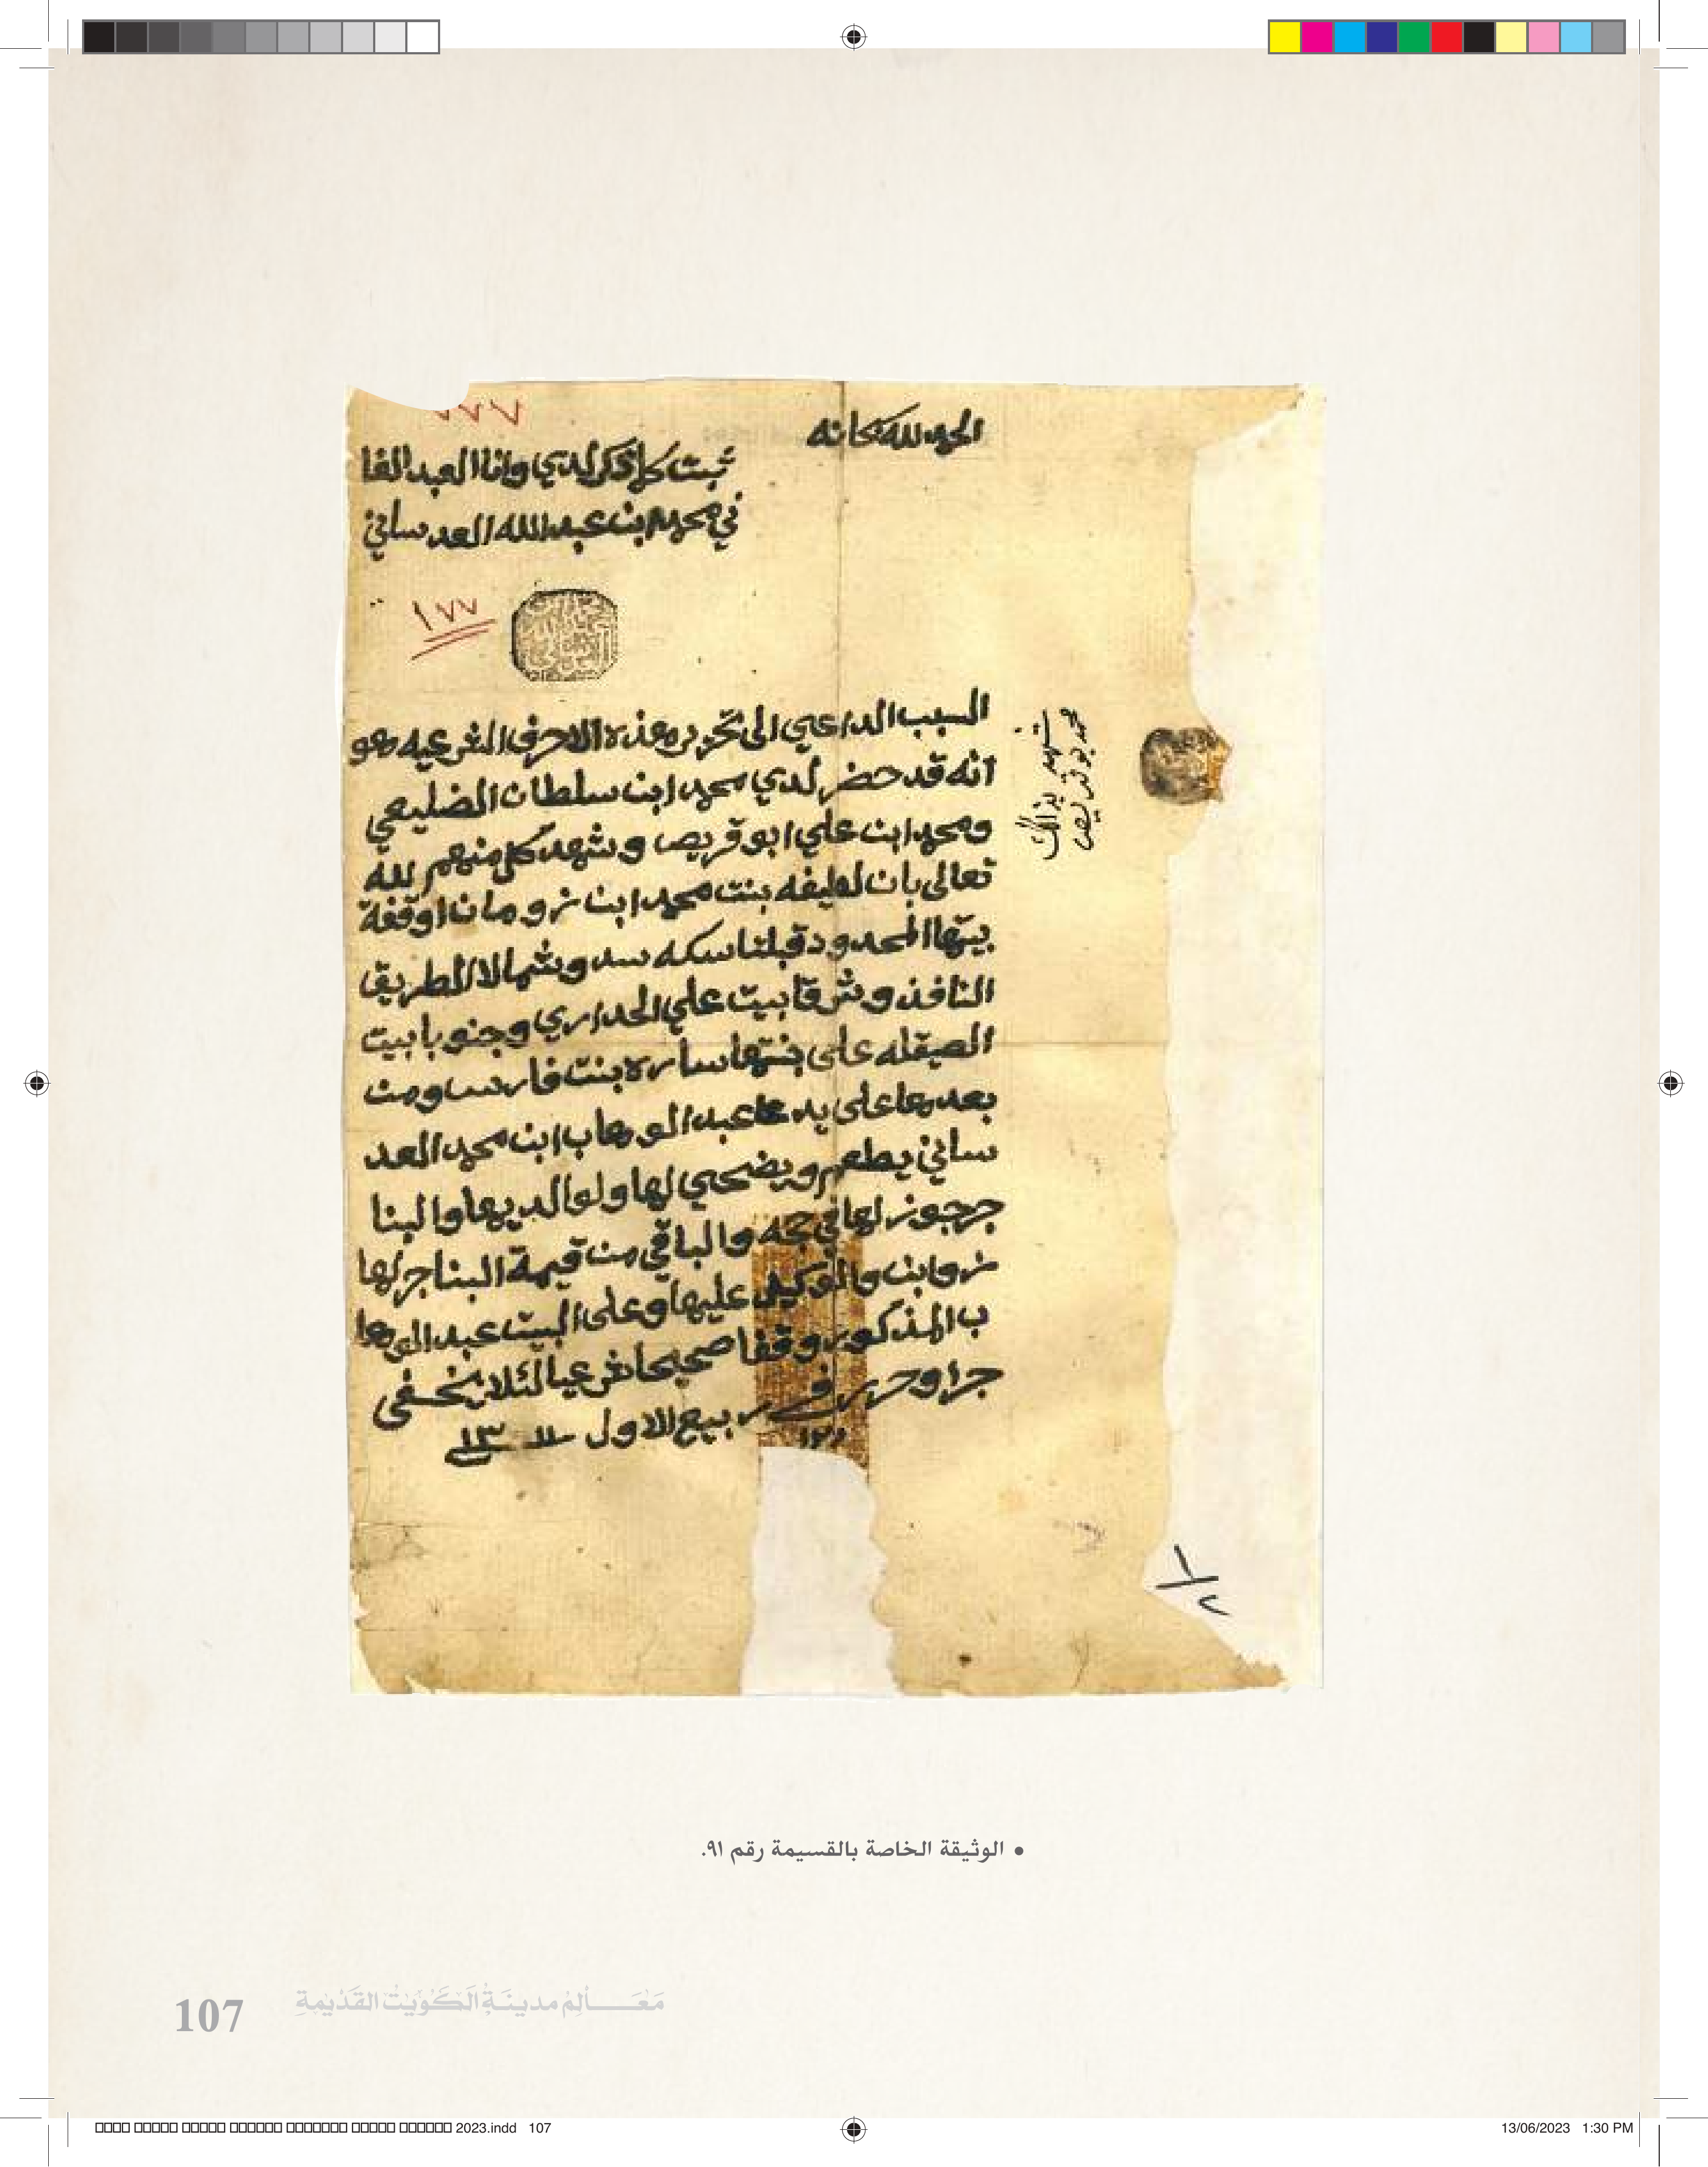 الحمد لله سبحانه
ثبت كلما ذكر لدي وانا العبد الفا
ني محمد ابن عبد الله العدساني
١٧٧
السبب الداعي الى تحرير هذه الاحرف الشرعيه هو
انه قد حضر لدي محمد ابن سلطان الضليعي
ومحمد ابن علي ابو قريص وشهد كل منهم لله
تعالى بان لطيفه بنت محمد ابن زومان اوقفة
بيتها المحدود قبلتا سكه سد وشمالا الطريق
النافذ وشرقا بيت علي الحداري وجنوبا بيت
الصيقله على بنتها ساره بنت فارس ومن
بعدها على يد عبد الوهاب ابن محمد العد
ساني يطعم ويضحي لها ولوالديها والبنا
لها في حجه والباقي من قيمة البنا
والوكيل عليها وعلى البيت عبد الوها
ب المذكور وقفا صحيحا شرعيا لئلا يخفى
جرا وحرر في ربيع الاول
شهد بذالك
محمد بو قريص
١/٢
• الوثيقة الخاصة بالقسيمة رقم ٩١.
مَعَالِمُ مدينَةِ الكُوَيْتِ القَدِيمَةِ
107
2023.indd 107
13/06/2023 1:30 PM